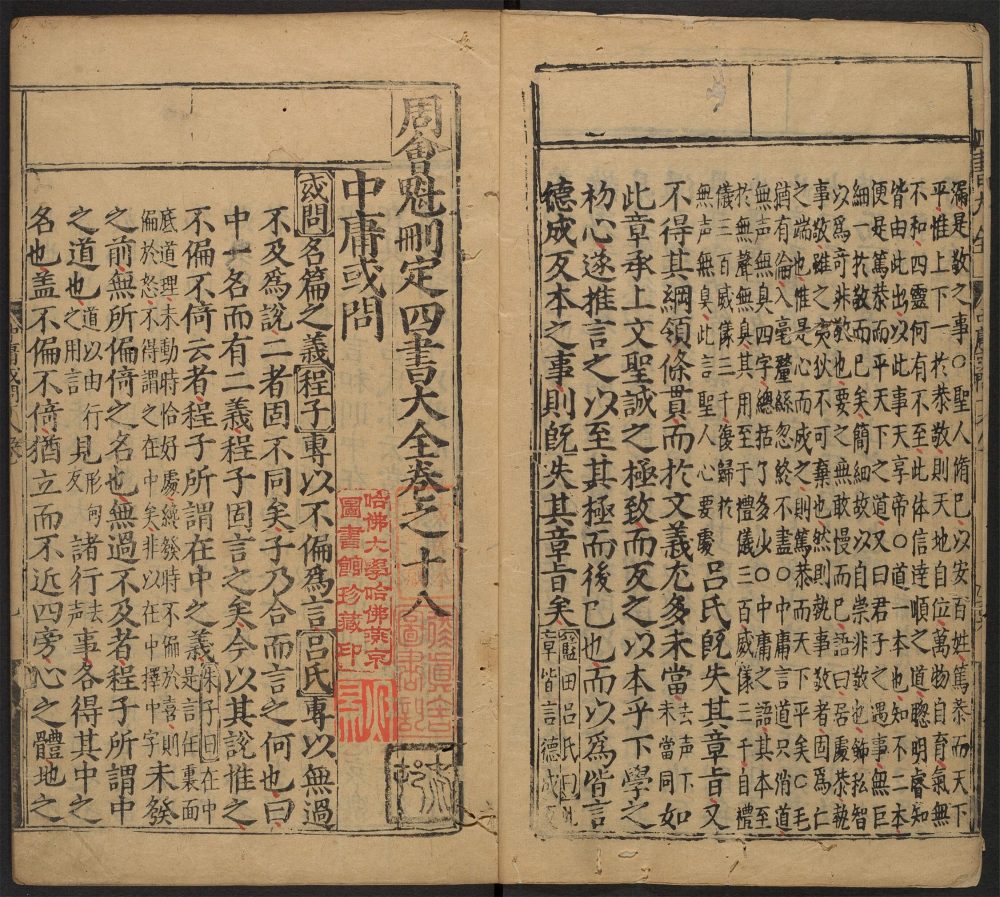 漏是敬之事○聖人脩己以安百姓篤恭而天下
平惟上下一於恭敬則天地自位萬物自育氣無
不和四靈何有不至此体信達順之道聰明睿知
皆由此出以此事天享帝○道一本也知不二本
便是篤恭而平天下之道又曰君子之遇事無巨
細一於敬而已矣簡細故以自崇非敬也飾私智
以為奇非敬也要之無敢慢而已語曰居處恭執
事敬雖之夷狄不可棄也然則執事敬者固為仁
之端也惟是心而成之則篤恭而天下平矣○毛
猶有倫入毫釐絲忽終不盡○中庸言道只消道
無声無臭四字總括了多少○中庸之語其本至
於無聲無臭其用至于禮儀三百威儀三千自禮
儀三百威儀三千復歸於無声無臭此言聖人心要處呂氏既失其章旨又
不得其綱領條貫而於文義尤多未當去声下未當同如
此章承上文聖誠之極致而反之以本乎下學之
初心遂推言之以至其極而後已也而以為皆言
德成反本之事則既失其章旨矣藍田呂氏曰此章皆言德成反
周會魁刪定四書大全卷之十八
哈佛大學哈佛燕京
圖書館珍藏印
中庸或問
或問名篇之義程子專以不偏為言呂氏專以無過
不及為說二者固不同矣子乃合而言之何也曰
中一名而有二義程子固言之矣今以其說推之
不偏不倚云者程子所謂在中之義朱子曰在中是言在裏面
底道理未動時恰好處纔發時不偏於喜則偏於怒不得謂之在中矣非以在中擇中字未發
之前無所偏倚之名也無過不及者程子所謂中
之道也道以由之用言行見形甸反諸行去声事各得其中之
名也盖不偏不倚猶立而不近四旁心之體地之